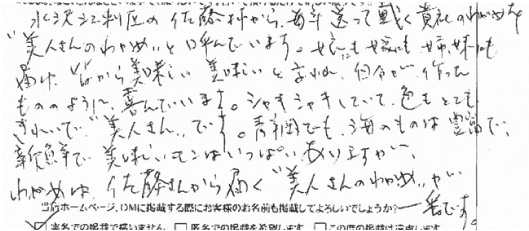 水沢江刺区の佐藤様から、毎年送って戴く貴社のわかめを
"美人さんのわかめ"と呼んでいます。娘にも嫁にも姉、妹にも
届け、皆から美味しい美味しいと言われ、自分が作った
もののように、喜んでいます。シャキシャキしていて、色もとても
きれいで"美人さん"です。青洲でも、海のものは豊富で、
新鮮で美味しいモンはいっぱいありますが、
わかめは、佐藤さんから届く"美人さんのわかめ"が
一番です。
当店ホームページ、DMに掲載する際にお客様のお名前も掲載してよろしいでしょうか?
実名での掲載で構いません。 □匿名での掲載を希望します。 □この際の掲載は遠慮します。